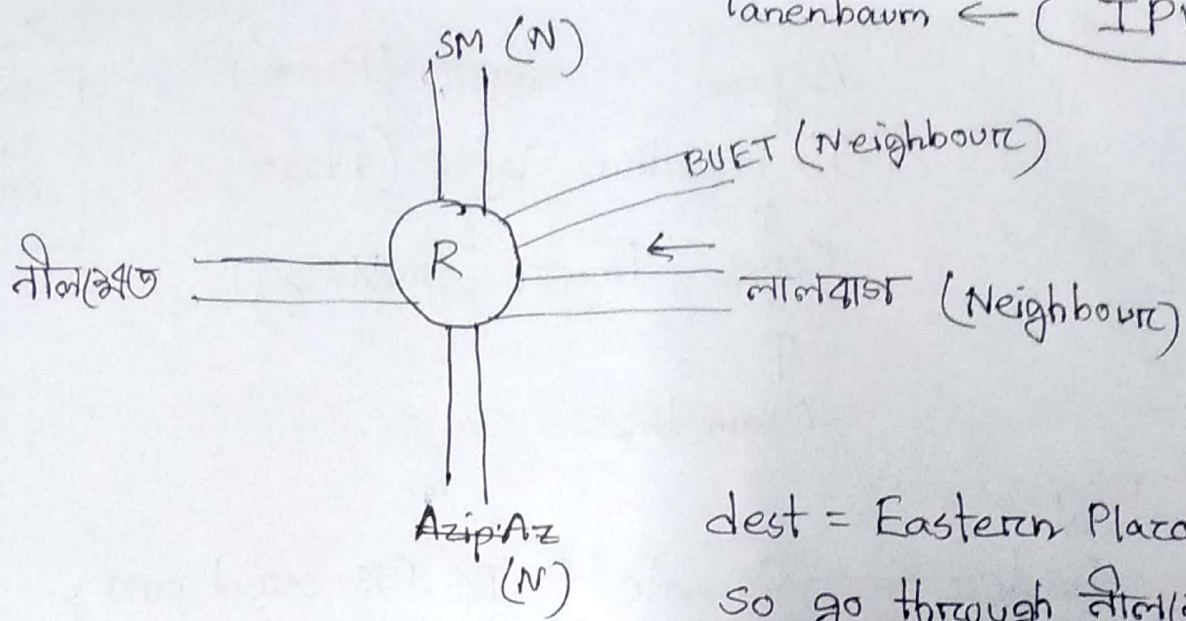 Tanenbaum ← IP
SM (N)
BUET (Neighbour)
R
←
নীলক্ষেত
লালবাগ (Neighbour)
Azip. Az
(N)
dest = Eastern Plaza
so go through